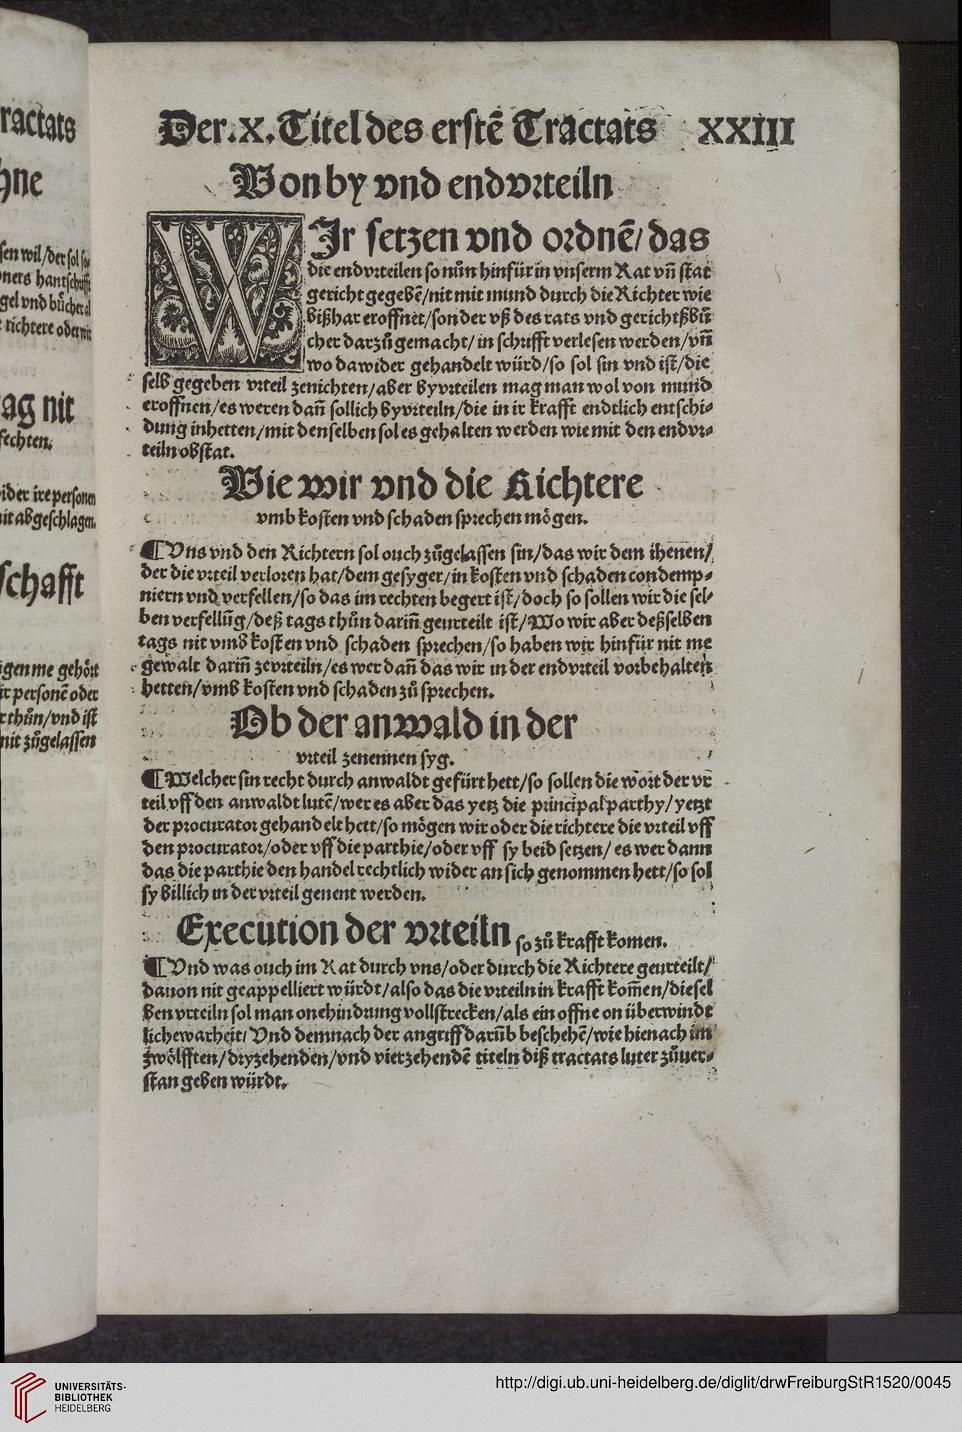 ractats
hne
sen wil/der sol so
ners hantschrifft
gel vnd bücher al
richtere oder wir
ag nit
fechten.
ider ire personen
nit abgeschlagen.
schafft
igen me gehört
ir personē oder
r thůn/vnd ist
nit zůgelassen
Der.x.Titel des erstē Tractats XXIII
Von by vnd endvrteiln
WJr setzen vnd ordnē/das
die endvrteilen so nůn hinfür in vnserm Rat vn̄ stat
gericht gegebē/nit mit mund durch die Richter wie
bißhar eroffnet/sonder vß des rats vnd gerichtßbü
cher darzů gemacht/in schrifft verlesen werden/vn̄
wo da wider gehandelt würd/so sol sin vnd ist/die
selb gegeben vrteil zenichten/aber byvrteilen mag man wol von mund
eroffnen/es weren dan̄ sollich byvrteiln/die in ir krafft endtlich entschi-
dung inhetten/mit denselben sol es gehalten werden wie mit den endvr-
teiln obstat.
Wie wir vnd die Richtere
vmb kosten vnd schaden sprechen mögen.
¶ Vns vnd den Richtern sol ouch zůgelassen sin/das wir dem ihenen/
der die vrteil verloren hat/dem gesyger/in kosten vnd schaden condemp-
niern vnd verfellen/so das im rechten begert ist/doch so sollen wir die sel-
ben verfellūg/deß tags thůn darin̄ geurteilt ist/Wo wir aber deßselben
tags nit vmb kosten vnd schaden sprechen/so haben wir hinfür nit me
gewalt darin̄ zevrteiln/es wer dan̄ das wir in der endvrteil vorbehalten
hetten/vmb kosten vnd schaden zů sprechen.
Ob der anwald in der
vrteil zenennen syg.
¶ Welcher sin recht durch anwaldt gefürt hett/so sollen die wort der vr
teil vff den anwaldt lutē/wer es aber das yetz die principal parthy/yetzt
der procurator gehandelt hett/so mögen wir oder die richtere die vrteil vff
den procurator/oder vff die parthie/oder vff sy beid setzen/es wer dann
das die parthie den handel rechtlich wider an sich genommen hett/so sol
sy billich in der vrteil genent werden.
Execution der vrteiln so zů krafft komen.
¶ Vnd was ouch im Rat durch vns/oder durch die Richtere geurteilt/
dauon nit geappelliert würdt/also das die vrteiln in krafft kom̄en/diesel
ben vrteiln sol man one hindrung vollstrecken/als ein offne on überwindt
lichewarheit/Vnd demnach der angriff darūb beschehē/wie hienach im
zwölfften/dryzehenden/vnd vierzehendē titeln diß tractats luter zůuer-
stan geben würdt.
UNIVERSITÄTS-
BIBLIOTHEK
HEIDELBERG
http://digi.ub.uni-heidelberg.de/diglit/drwFreiburgStR1520/0045